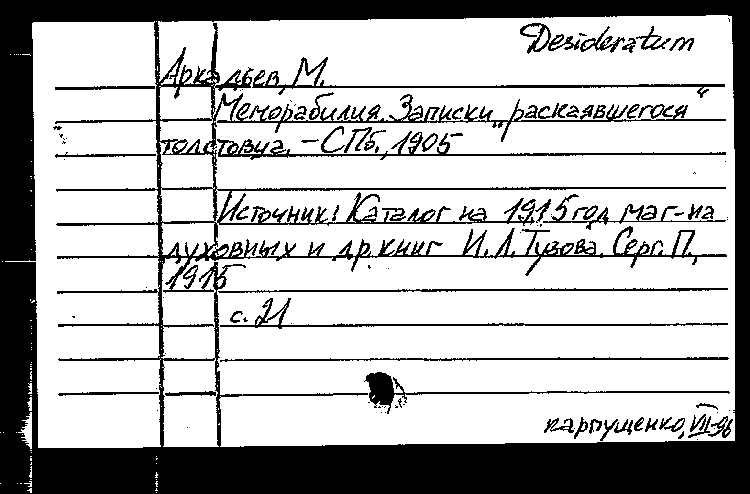 Desideratum
Аркадьев, М.
Меморабилия. Записки „раскаявшегося“
толстовца. – СПб., 1905
Источник: Каталог на 1915 год маг-на
духовных и др. книг И.Л. Тузова. Серг. П.,
1915
с. 21
Карпущенко, VII-96